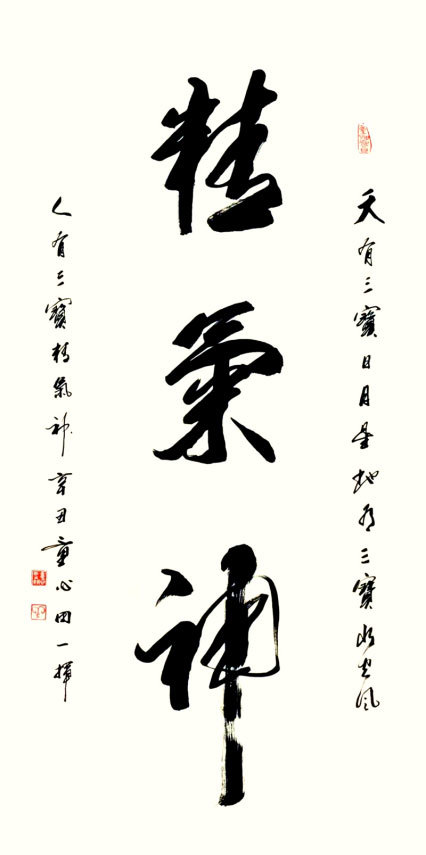 天有三寶日月星地有三寶水火風
精氣神
人有三寶精氣神辛丑童心田一揮